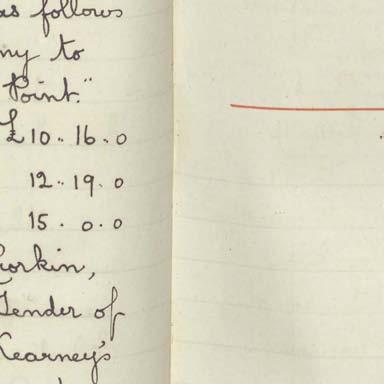 as follows
ny to
Point."
£10.. 16. 0
12.. 19. 0
15. 0. 0
Corkin,
Tender of
Kearney's